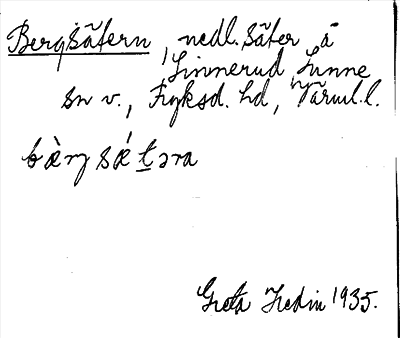 Bergsätern, nedl. säter å
Linnerud, Sunne
sn v., Fryksd. hd, Värml. l.
bæ̀rg sǽt̲ əra
Greta Hedin 1935.